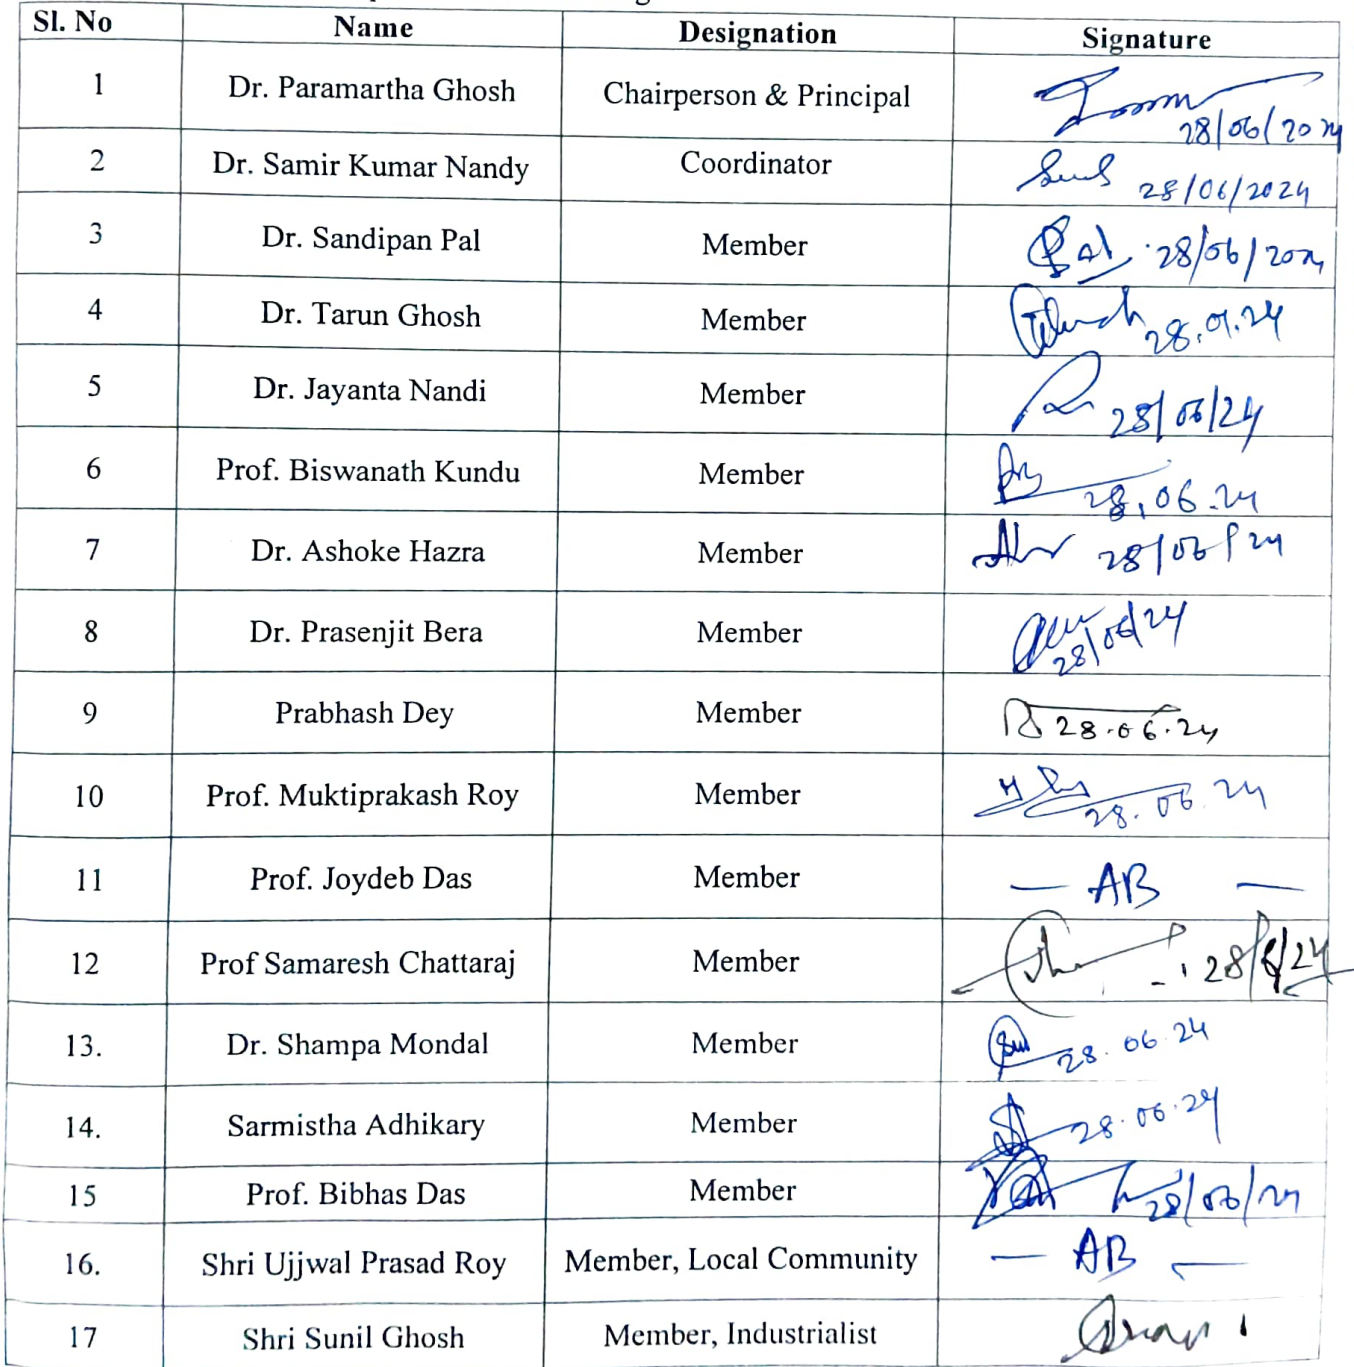 Sl. No Name Designation Signature
1 Dr. Paramartha Ghosh Chairperson & Principal 28/06/2024
2 Dr. Samir Kumar Nandy Coordinator 28/06/2024
3 Dr. Sandipan Pal Member Pal 28/06/2024
4 Dr. Tarun Ghosh Member 28.01.24
5 Dr. Jayanta Nandi Member 28/06/24
6 Prof. Biswanath Kundu Member 28.06.24
7 Dr. Ashoke Hazra Member 28/06/24
8 Dr. Prasenjit Bera Member 28/06/24
9 Prabhash Dey Member 28.06.24
10 Prof. Muktiprakash Roy Member 28.06.24
11 Prof. Joydeb Das Member — AB —
12 Prof Samaresh Chattaraj Member 28/6/24
13. Dr. Shampa Mondal Member 28.06.24
14. Sarmistha Adhikary Member 28.06.24
15 Prof. Bibhas Das Member 28/06/24
16. Shri Ujjwal Prasad Roy Member, Local Community — AB —
17 Shri Sunil Ghosh Member, Industrialist